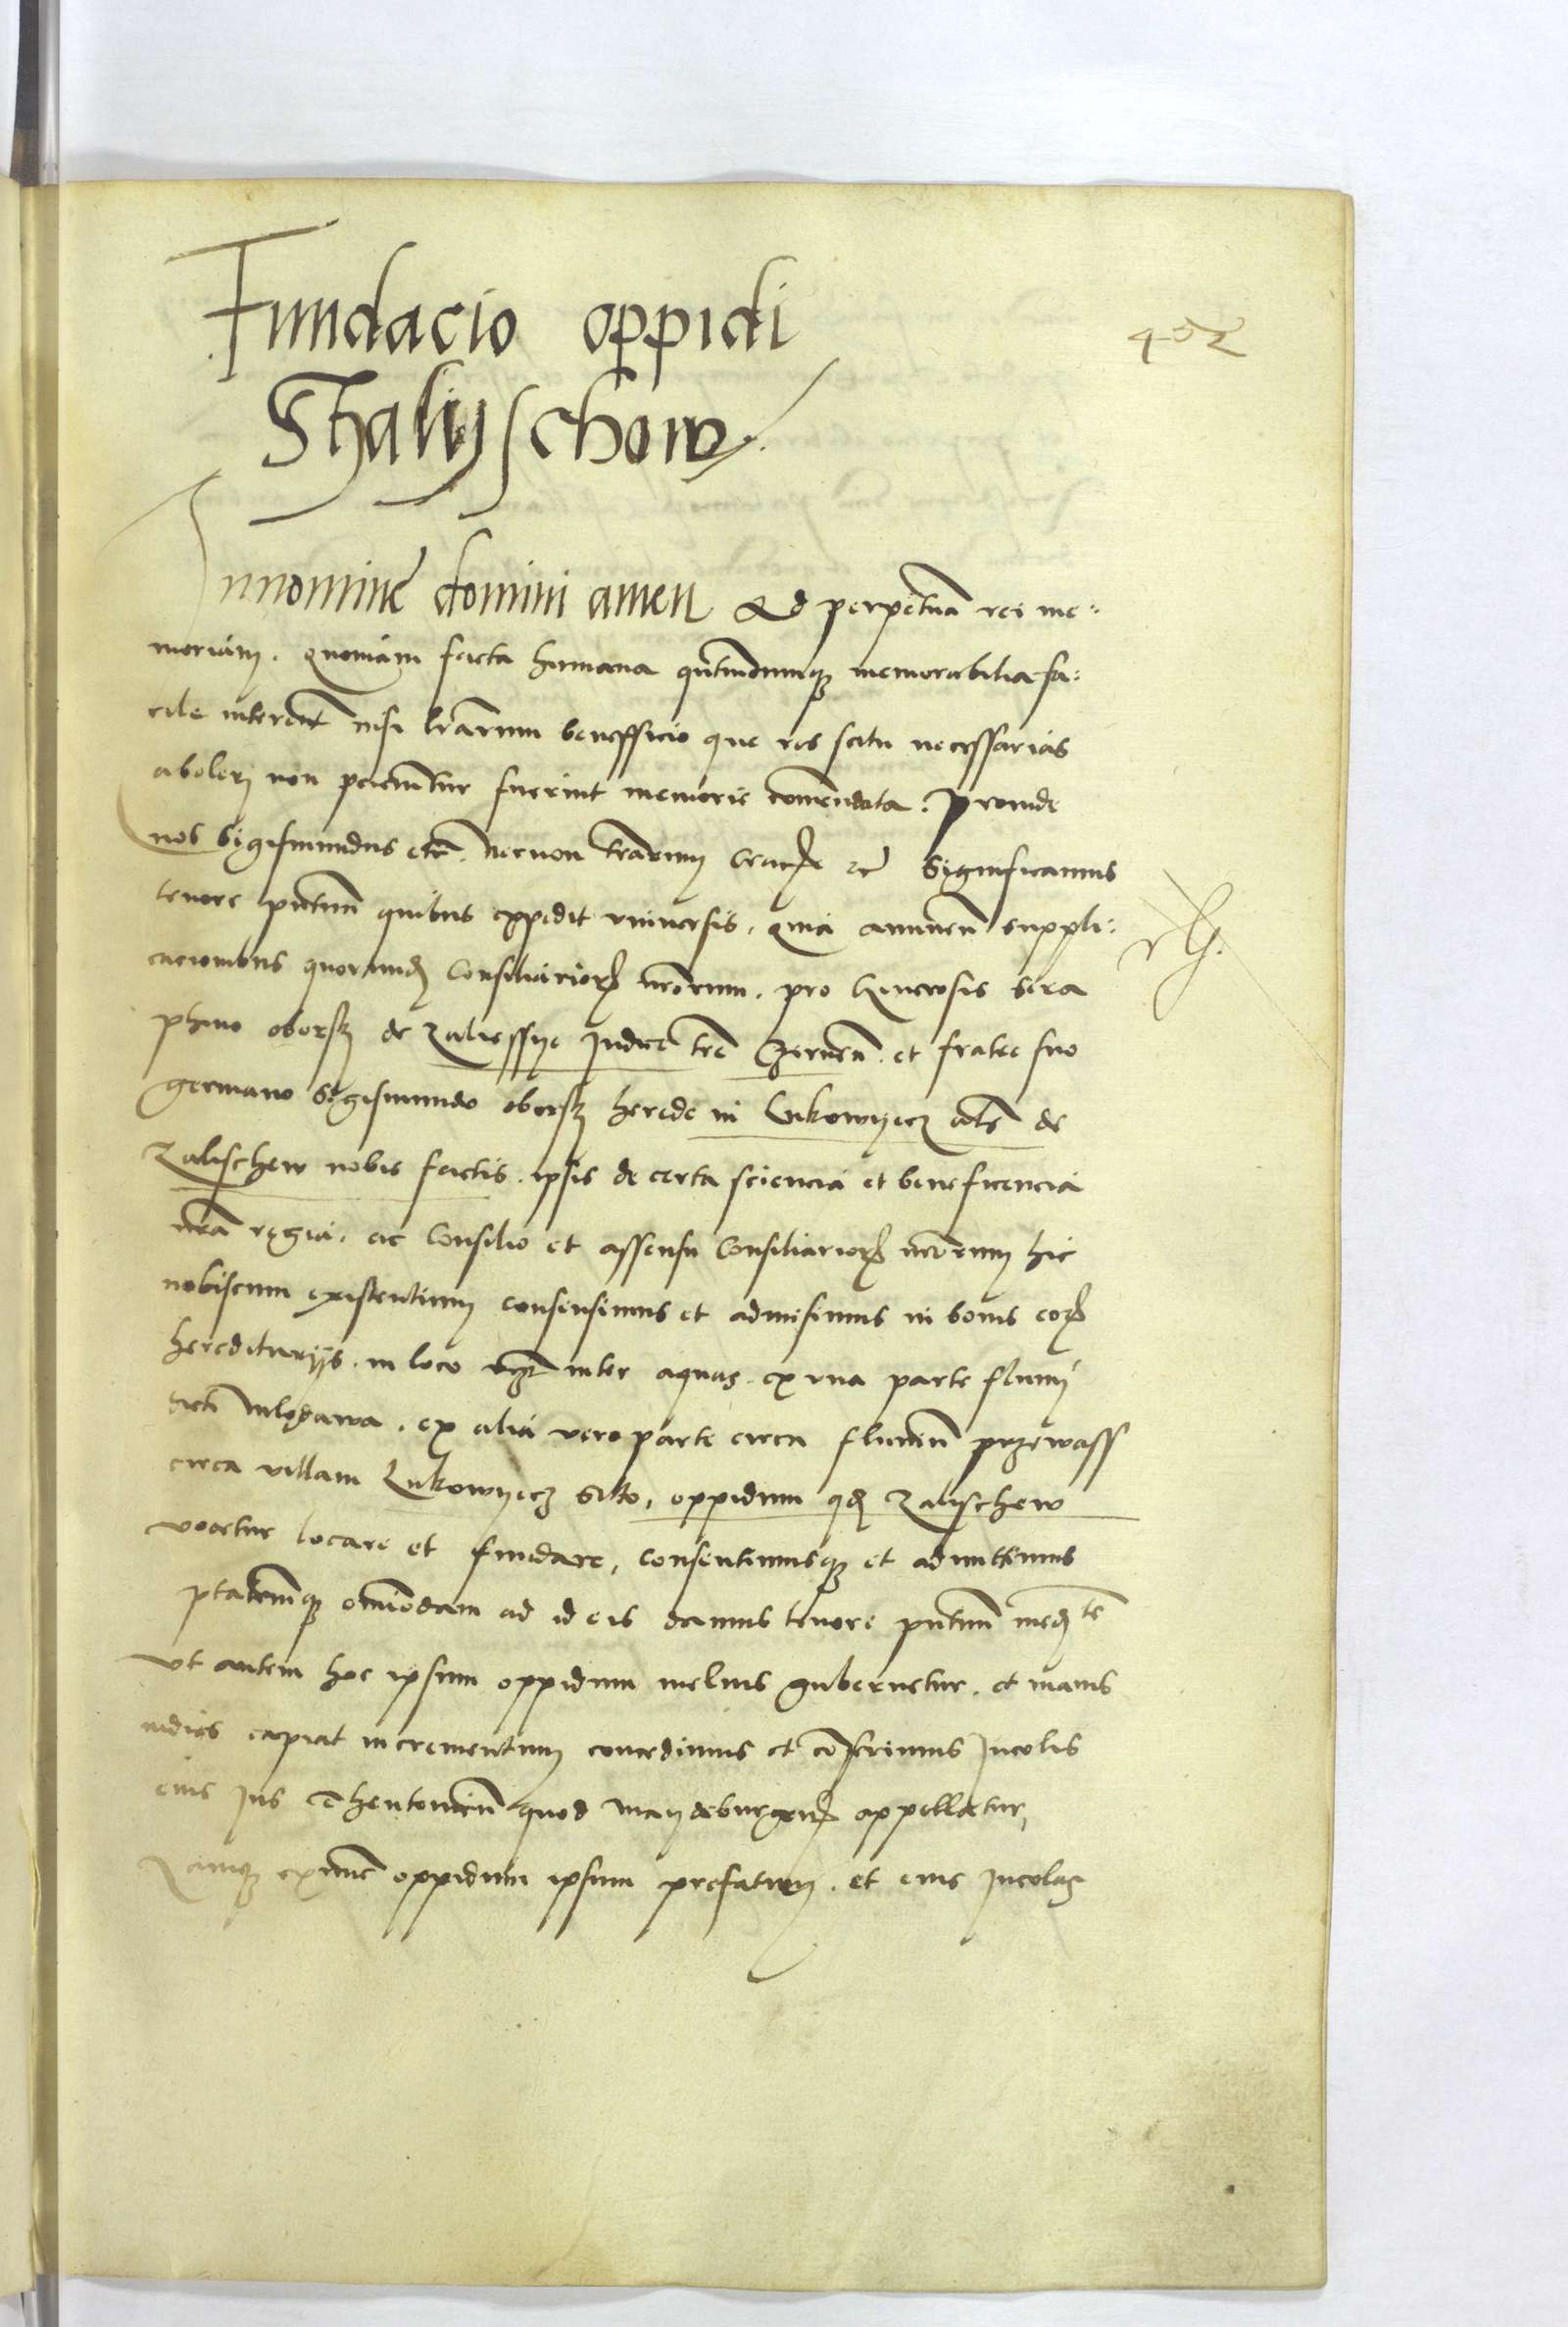 Fundacio oppidi
402
Shalijschow
In nomine domini amen Ad perpetuã rei me:
moriam. Quoniam facta humana qũtũcunq3 memorabilia fa:
cile intereũt nisi lr̃arum benefficio que res scitu necessarias
aboleri non paciuntur fuerint memorie comẽdata. Proinde
nos Sigismundus etc̃. Necnon tr̃arum Crac̃ etc̃ Significamus
tenore pñtium quibus expedit vniversis. quia annuen̄ suppli:
cacionibus quorund̃ Consiliarior̃ nr̃orum. pro Generosis Sera
phino oborsky de Zaliessye Judice tr̃e Czernen̄. et fratre suo
germano Sigismundo oborsky herede in Lukowyecz al̃s de
Zalischew nobis factis. ipsis de certa sciencia et beneficencia
nr̃a regia. ac Consilio et assensu Consiliarior̃ nr̃orum hic
nobiscum existentium consensimus et admisimus in bonis eor̃
hereditariis. in loco inter aquas. ex vna parte flumij
dicti Wlodawa. ex alia vero parte circa flumen przewass
circa villam Lukowyecz sito, oppidum qd̃ Zalischew
vocetur locare et fundare, Consentimusq3 et admittimus
p̃tatemq3 omĩodam ad id eis damus tenore pñtium med̃te
Vt autem hoc ipsum oppidum melius gubernetur. et maius
indies capiat incrementum concedimus et cõferimus Incolis
eius Jus Thewtonicũ quod Maydeburgen̄ appellatur,
eximẽ oppidum ipsum prefatum. et eius Incolas